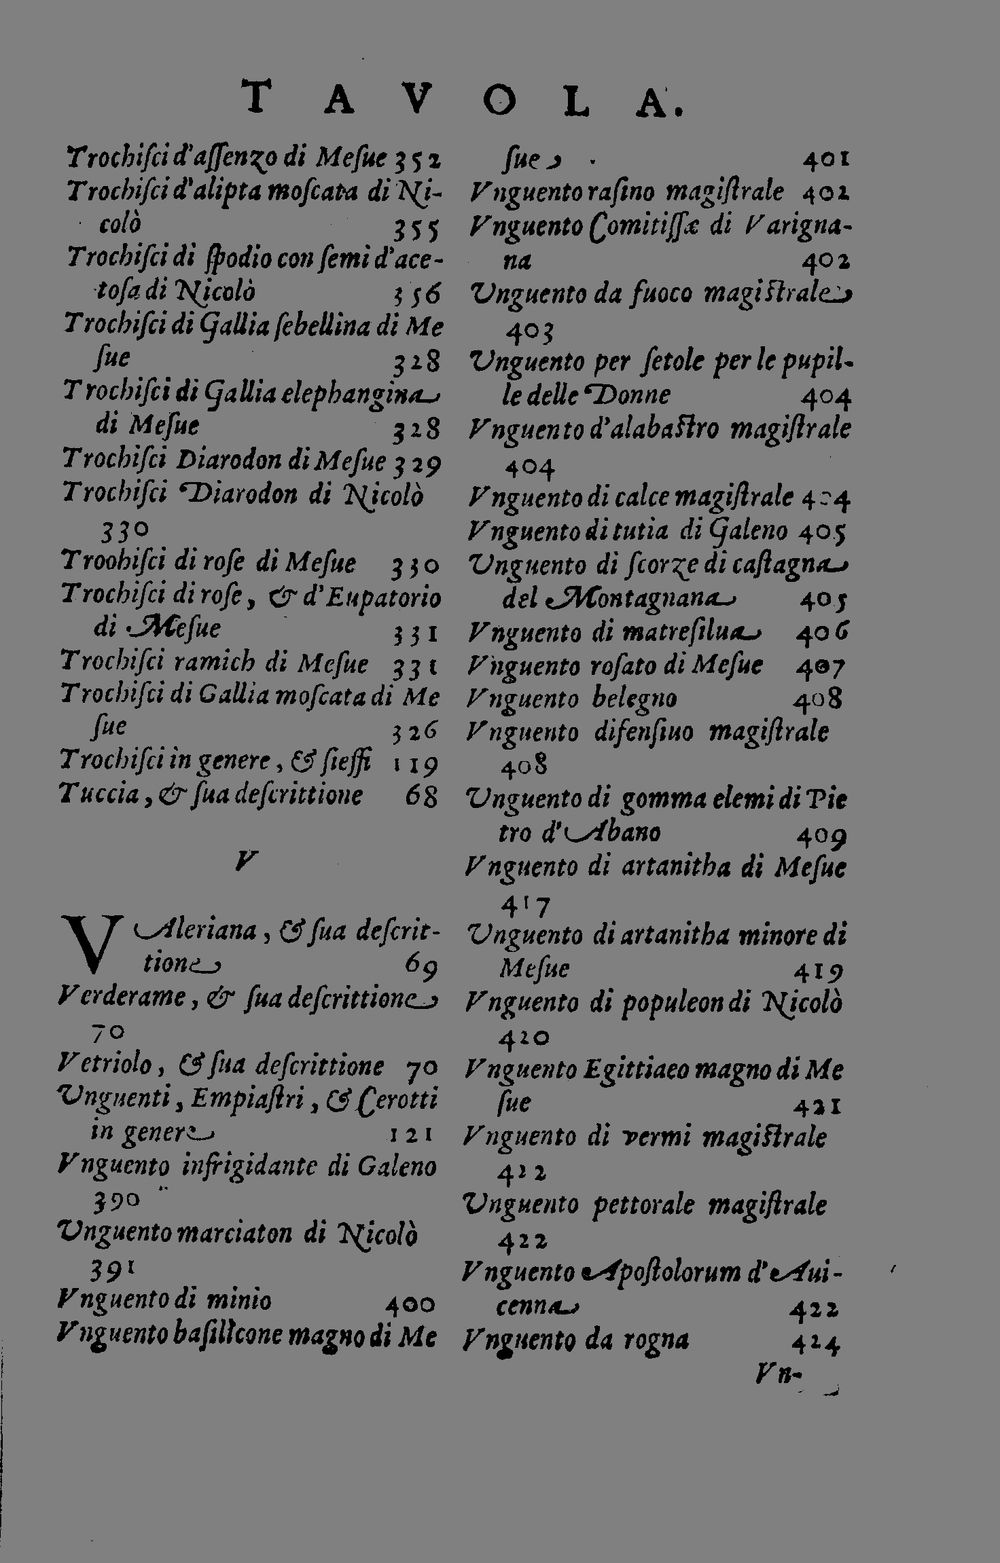 TAVOLA.
Trochiſci d'aſſenzo di Meſue 352
Trochiſci d'alipta moſcata di Ni-
colò 355
Trochiſci di ſpodio con ſemi d'ace-
toſa di Nicolò 356
Trochiſci di Gallia ſebellina di Me
ſue 328
Trochiſci di Gallia elephangina
di Meſue 328
Trochiſci Diarodon di Meſue 329
Trochiſci Diarodon di Nicolò
330
Troohiſci di roſe di Meſue 330
Trochiſci di roſe, & d'Eupatorio
di Meſue 331
Trochiſci ramich di Meſue 331
Trochiſci di Gallia moſcata di Me
ſue 326
Trochiſci in genere, & ſieffi 119
Tuccia, & ſua deſcrittione 68
V
VAleriana, & ſua deſcrit-
tione 69
Verderame, & ſua deſcrittione
70
Vetriolo, & ſua deſcrittione 70
Vnguenti, Empiaſtri, & Cerotti
in genere 121
Vnguento infrigidante di Galeno
390
Vnguento marciaton di Nicolò
391
Vnguento di minio 400
Vnguento baſilicone magno di Me
ſue 401
Vnguento raſino magiſtrale 402
Vnguento Comitiſſæ di Varigna-
na 402
Vnguento da fuoco magiſtrale
403
Vnguento per ſetole per le pupil-
le delle Donne 404
Vnguento d'alabaſtro magiſtrale
404
Vnguento di calce magiſtrale 404
Vnguento di tutia di Galeno 405
Vnguento di ſcorze di caſtagna
del Montagnana 405
Vnguento di matreſilua 406
Vnguento roſato di Meſue 407
Vnguento belegno 408
Vnguento difenſiuo magiſtrale
408
Vnguento di gomma elemi di Pie
tro d'Abano 409
Vnguento di artanitha di Meſue
417
Vnguento di artanitha minore di
Meſue 419
Vnguento di populeon di Nicolò
420
Vnguento Egittiaco magno di Me
ſue 421
Vnguento di vermi magiſtrale
422
Vnguento pettorale magiſtrale
422
Vnguento Apoſtolorum d'Aui-
cenna 422
Vnguento da rogna 424
Vn-